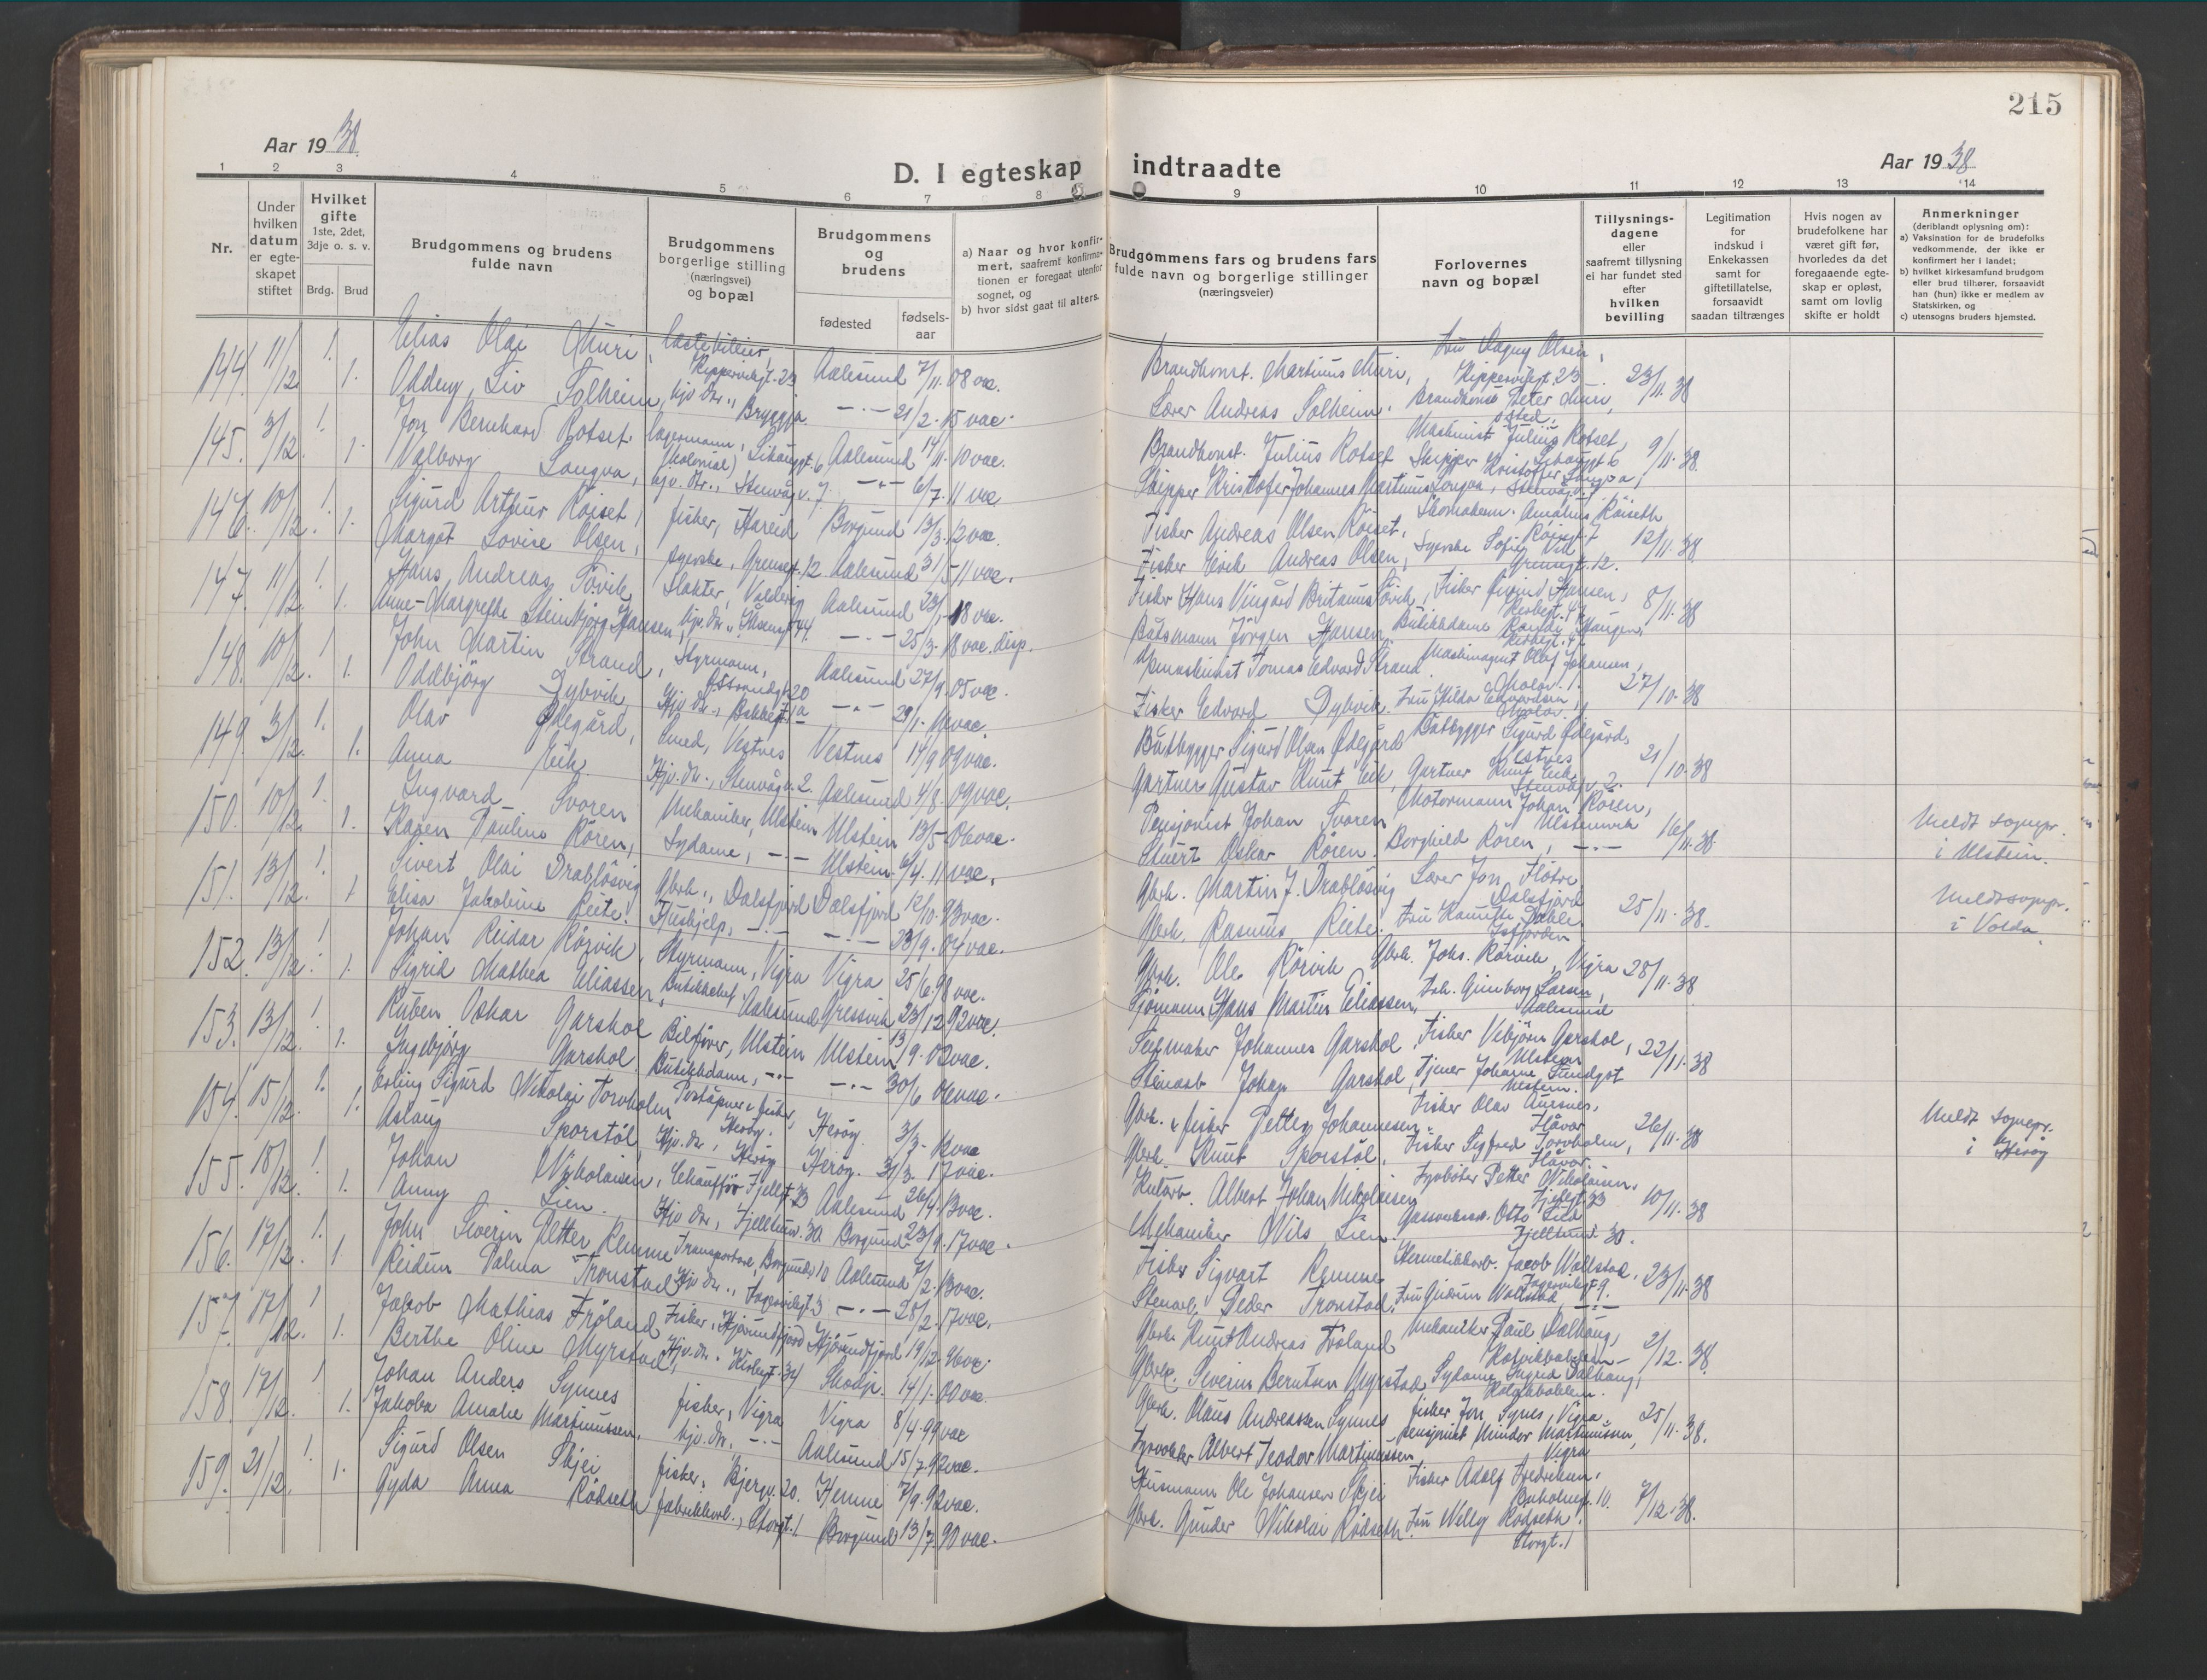 215
Aar 1938
D. I egteskap indtraadte
Aar 1938
1 2 3 4 5 6 7 8 9 10 11 12 13 14
Nr.
Under hvilken datum er egteskapet stiftet
Hvilket gifte 1ste, 2det, 3dje o. s. v.
Brdg. Brud
Brudgommens og brudens fulde navn
Brudgommens borgerlige stilling (næringsvei) og bopæl
Brudgommens og brudens
fødested
fødselsaar
a) Naar og hvor konfirmert, saafremt konfirmationen er foregaat utenfor sognet, og
b) hvor sidst gaat til alters.
Brudgommens fars og brudens fars fulde navn og borgerlige stillinger (næringsveier)
Forlovernes navn og bopæl
Tillysningsdagene eller saafremt tillysning ei har fundet sted efter hvilken bevilling
Legitimation for indskud i Enkekassen samt for giftetillatelse, forsaavidt saadan tiltrænges
Hvis nogen av brudefolkene har været gift før, hvorledes da det foregaaende egteskap er opløst, samt om lovlig skifte er holdt
Anmerkninger (deriblandt oplysning om):
a) Vaksination for de brudefolks vedkommende, der ikke er konfirmert her i landet;
b) hvilket kirkesamfund brudgom eller brud tilhører, forsaavidt han (hun) ikke er medlem av Statskirken, og
c) utensogns bruders hjemsted.
144. 11/12. 1. Elias Olai Muri, Aalesund 7/11. 08 vac. Brandkonst. Martinus Muri, Fru Dagny Olsen, 23/11. 38
1. Oddny Liv Solheim, hjv. dtr., Bryggja. -"- 21/2. 15 vac. Lærer Andreas Solheim. Brandkonst. Peter Muri,
145. 3/12. 1. Jon Bernhard Rotset. Lagermann, (kolonial) Aalesund 14/11. 10 vac. Brandkonst. Julius Rotset Maskinist Julius Rotset, 9/11. 38.
1. Valborg Longva, hjv. dtr., Stenvågv. 7. -"- 6/7. 11 vac. Skipper Kristofer Johannes Martinus Longva, Skipper Kristoffer Longva, Stenvågv. 7.
146. 10/12. 1. Sigurd Arthur Röiset, fisker, Hareid Borgund 13/3. 12 vac. Fisker Andreas Olsen Röiset. Skomakerm. Amalius Röiseth 12/11. 38
1. Margot Lovise Olsen, syerske, Grensegt. 12. Aalesund 31/5 11 vac. Fisker Eivik Andreas Olsen, Syerske Sofie Grensegt. 12.
147. 11/12. 1. Hans Andreas Sövik, Slakter, Valderøy Aalesund 23/1. 18 vac. Fisker Hans Vingård Britanus Sövik, Fisker Öivind Hansen, 8/11. 38
1. Anne-Margrethe Steinbjörg Hansen, hjv. dtr., -"- 25/3. 18 vac. disp. Båtsmann Jörgen Hansen. Butikkdame Randi Haugen,
148. 10/12. 1. John Martin Strand, Styrmann, Aalesund 27/9. 05 vac. Tomas Edvard Strand. Olaf Johansen, 27/10. 38
1. Oddbjörg Dybvik, Hjv. dtr., -"- 29/1. vac. Fisker Edvard Dybvik. Fru Hilda Edvardsen,
149. 3/12. 1. Olav Ødegård, Smed, Vestnes Vestnes 14/9 09 vac. Båtbygger Sigurd Olsen Ødegård Båtbygger Sigurd Ødegård, Vestnes 21/10. 38
1. Anna Eik. Hjv. dtr., Stenvågv. 2. Aalesund 4/8. 09 vac. Gartner Gustav Knut Eik, Gartner Knut Eik, Stenvågv. 2.
150. 10/12. 1. Ingvard Svoren Mekaniker, Ulstein Ulstein 13/5 06 vac. Pensjonist Johan Svoren Motormann Johan Rören, Ulsteinvik 16/11. 38. Meldt sognepr. i Ulstein.
1. Karen Pauline Rören, Sydame, -"- Ulstein 6/4. 11 vac. Stuert Oskar Rören. Borghild Rören, -"-
151. 13/12. 1. Sivert Olai Drabløsvig Gbrk., Dalsfjord Dalsfjord 12/10. 93 vac. Gbrk. Martin J. Drabløsvig Lærer Jon Fløtre Dalsfjord 25/11. 38. Meldt sognepr. i Volda
1 Elisa Jakobine Reite. Hushjelp, -"- -"- 23/9. 04 vac. Gbrk. Rasmus Reite.
152. 13/12. 1. Johan Reidar Rörvik, Styrmann, Vigra Vigra 25/6. 98 vac. Gbrk. Ole Rörvik Gbrk. Johs. Rörvik, Vigra 28/11. 38
1. Sigrid Mathea Eliassen, Aalesund Gressvik 23/12 92 vac. Sjömann Hans Martin Eliassen, Frk. Gunborg Larsen, Aalesund
153. 13/12. 1. Ruben Oskar Garshol Bilförer, Ulstein Ulstein 13/9. 02 vac. Seilmaker Johannes Garshol, Fisker Vebjörn Garshol, Ulstein 22/11. 38
1. Ingebjörg Garshol. Butikkdame, -"- -"- 30/6 06 vac. Stenarb. Johan Garshol, Johanne Sundgot Ulstein.
154. 15/12. 1. Erling Sigurd Nikolai Torvholm Poståpner & fisker, Herøy. Herøy. 3/3. vac Gbrk. & fisker Petter Johannesen. Fisker Olav Aursnes, Flåvær 26/11. 38 Meldt sognepr. i Herøy
1. Aslaug Sporstöl, Hjv. dtr., Herøy Herøy. 31/3. 17 vac. Gbrk. Knut Sporstöl, Fisker Sigfred Torvholm, Flåvær.
155. 18/12. 1. Johan Nykolaisen, Chauffør Fjellgt. 23 Aalesund 26/4. 13 vac. Albert Johan Nikolaisen Fyrbøter Petter Nikolaisen, Fjellgt. 23 10/11. 38
1. Anny Lien. Hjv dtr., Fjelltunv. 30 Borgund 23/9. 17 vac. Mekaniker Nils Lien. Otto Lied Fjelltunv. 30.
156. 17/12. 1. John Severin Petter Remme Aalesund 7/2. 13 vac. Fisker Sigvart Remme Hermetikkarb. Jacob Wollstad, 23/11. 38
1. Reidun Palma Tronstad Hjv dtr., -"- 28/2. 17 vac. Stenarb. Peder Tronstad. Fru Gudrun Wollstad -"-
157. 17/12. 1. Jakob Mathias Fröland Fisker, Hjørundfjord Hjørundfjord 19/12. 96 vac. Gbrk. Knut Andreas Fröland Mekaniker Paul Dalhaug, 2/12. 38
1. Berthe Oline Myrstad, Hjv. dtr. Kirkegt. 34 Skodje. 14/1. 00 vac. Gbrk. Severin Berntsen Myrstad Sydame Ingrid Dalhaug,
158. 17/12. 1. Johan Anders Synnes fisker, Vigra Vigra 8/4. 99 vac Gbrk. Olaus Andreassen Synnes fisker Jon Synes, Vigra 25/11. 38.
1. Jakoba Amalie Martinussen. hjv. dtr. -"- Aalesund 15/7. 92 vac. Fyrvokter Albert Teodor Martinussen pensjonist Minder Martinussen, Vigra
159. 21/12. 1. Sigurd Olsen Skjei fisker, Bjergv. 20. Hemne 7/9. 92 vac. Husmann Ole Johansen Skjei Fisker Adolf Fredriksen, 7/12. 38.
1. Gyda Anna Rödseth fabrikkarb., Storgt. 1 Borgund 13/7. 90 vac. Gbrk. Gunder Nikolai Rödseth. Fru Willy Rödseth, Storgt. 1